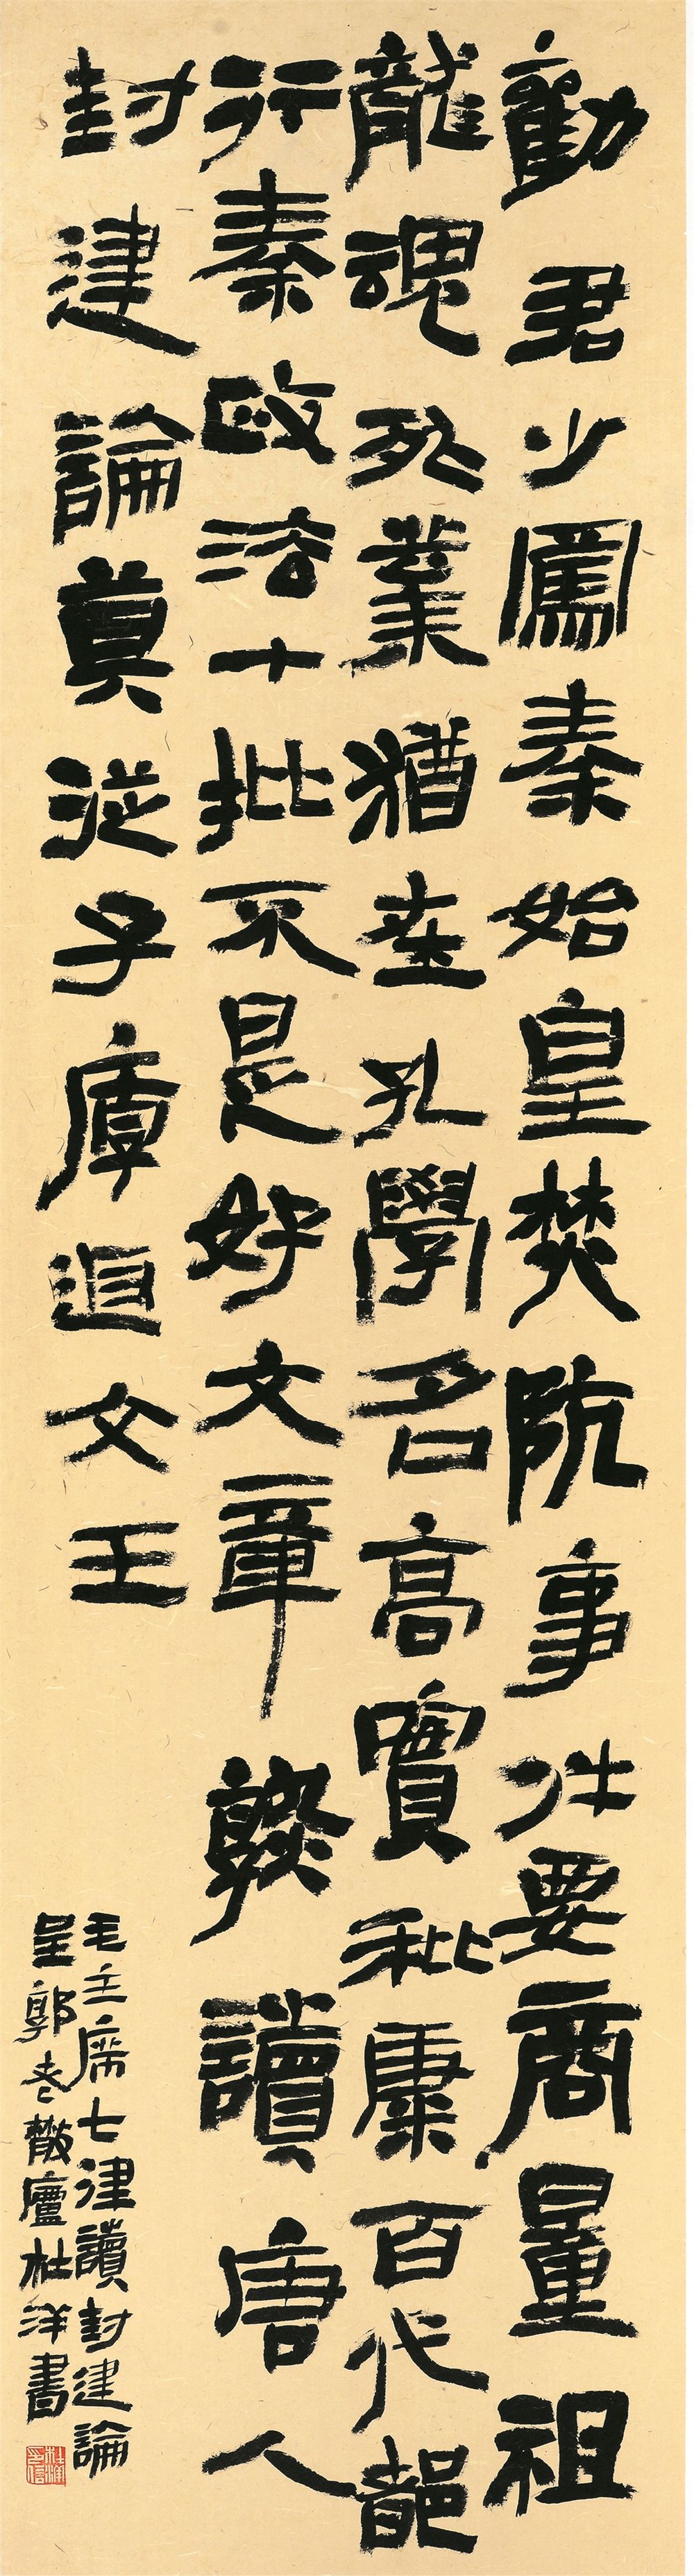 勸君少罵秦始皇焚阬事件要商量祖
龍魂死業猶在孔學名高實秕糠百代都
行秦政法十批不是好文章熟讀唐人
封建論莫從子厚返文王
毛主席七律讀封建論
呈郭老廬杜洋書